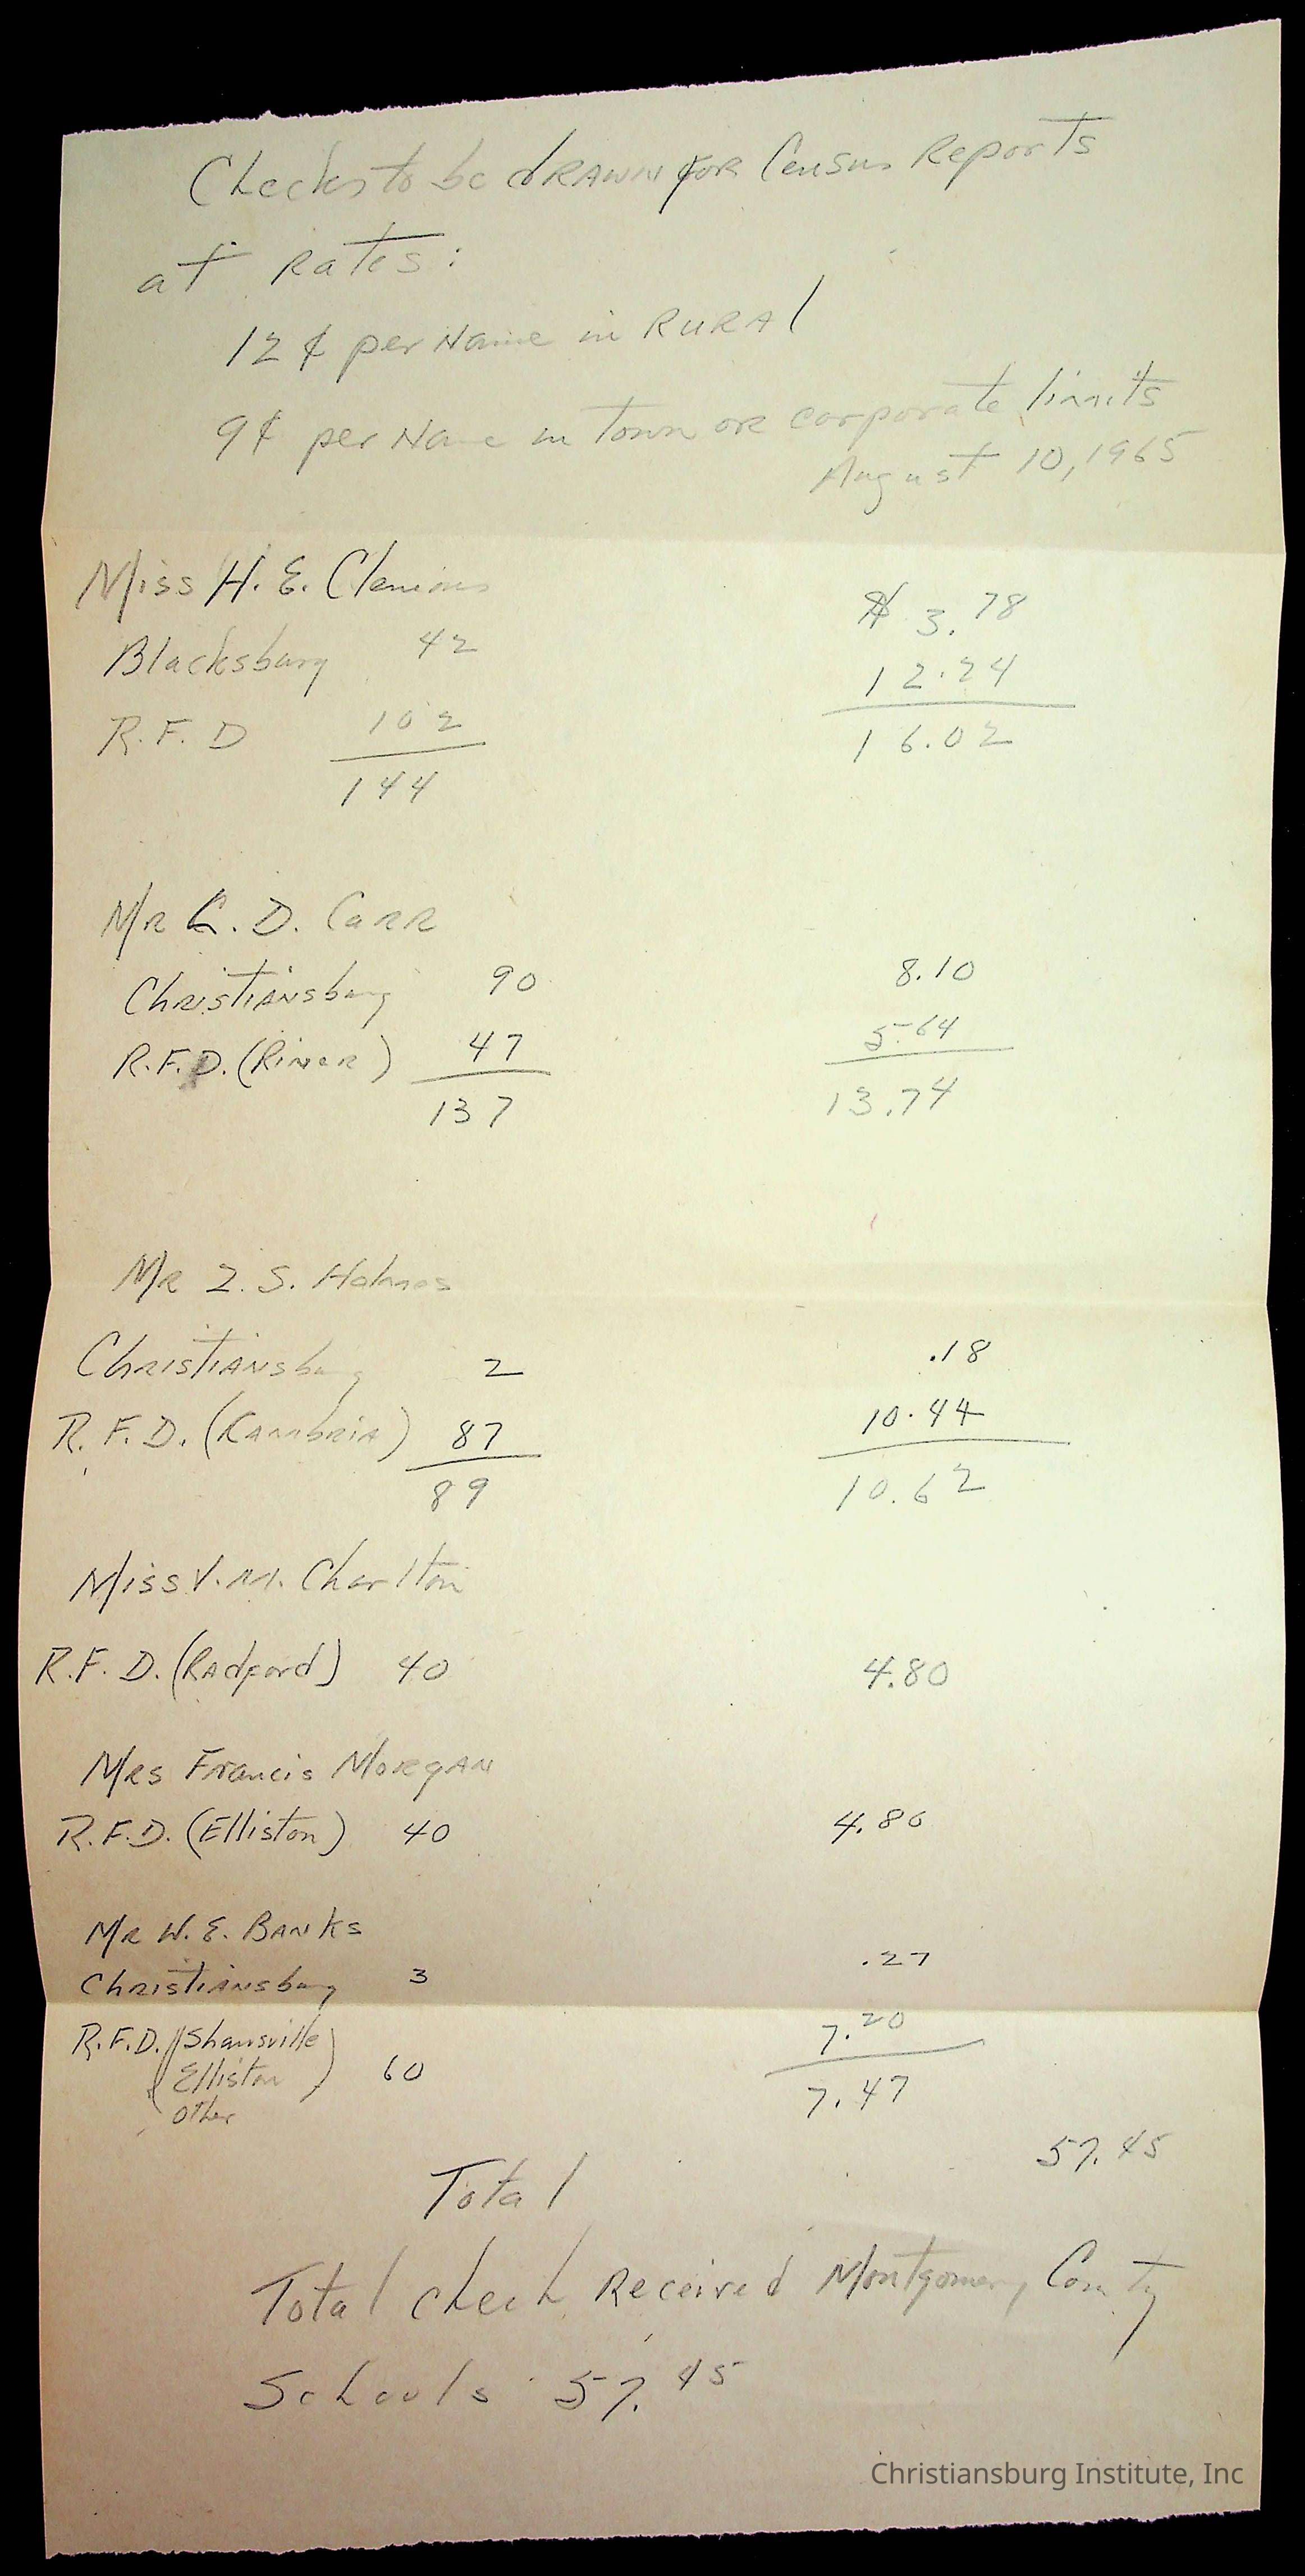 Checks to be drawn for Census Reports
at Rates:
12¢ per Name in RURAl
9¢ per Name in Town or corporate limits
August 10, 1965
Miss H. E. Clemons $ 3.78
Blacksburg 42 12.24
R.F.D 102 16.02
144
Mr C. D. Carr
Christiansburg 90 8.10
R.F.D. (Riner) 47 5.64
137 13.74
Mr Z. S. Holmes
Christiansburg 2 .18
R.F.D. (Kambria) 87 10.44
89 10.62
Miss V. M. Charlton
R.F.D. (Radford) 40 4.80
Mrs Francis Morgan
R.F.D. (Elliston) 40 4.80
Mr W. E. Banks
Christiansburg 3 .27
R.F.D. (Shawsville 7.20
Elliston) 60 7.47
Other
Total 57.45
Total check Received Montgomery County
Schools 57.45
Christiansburg Institute, Inc